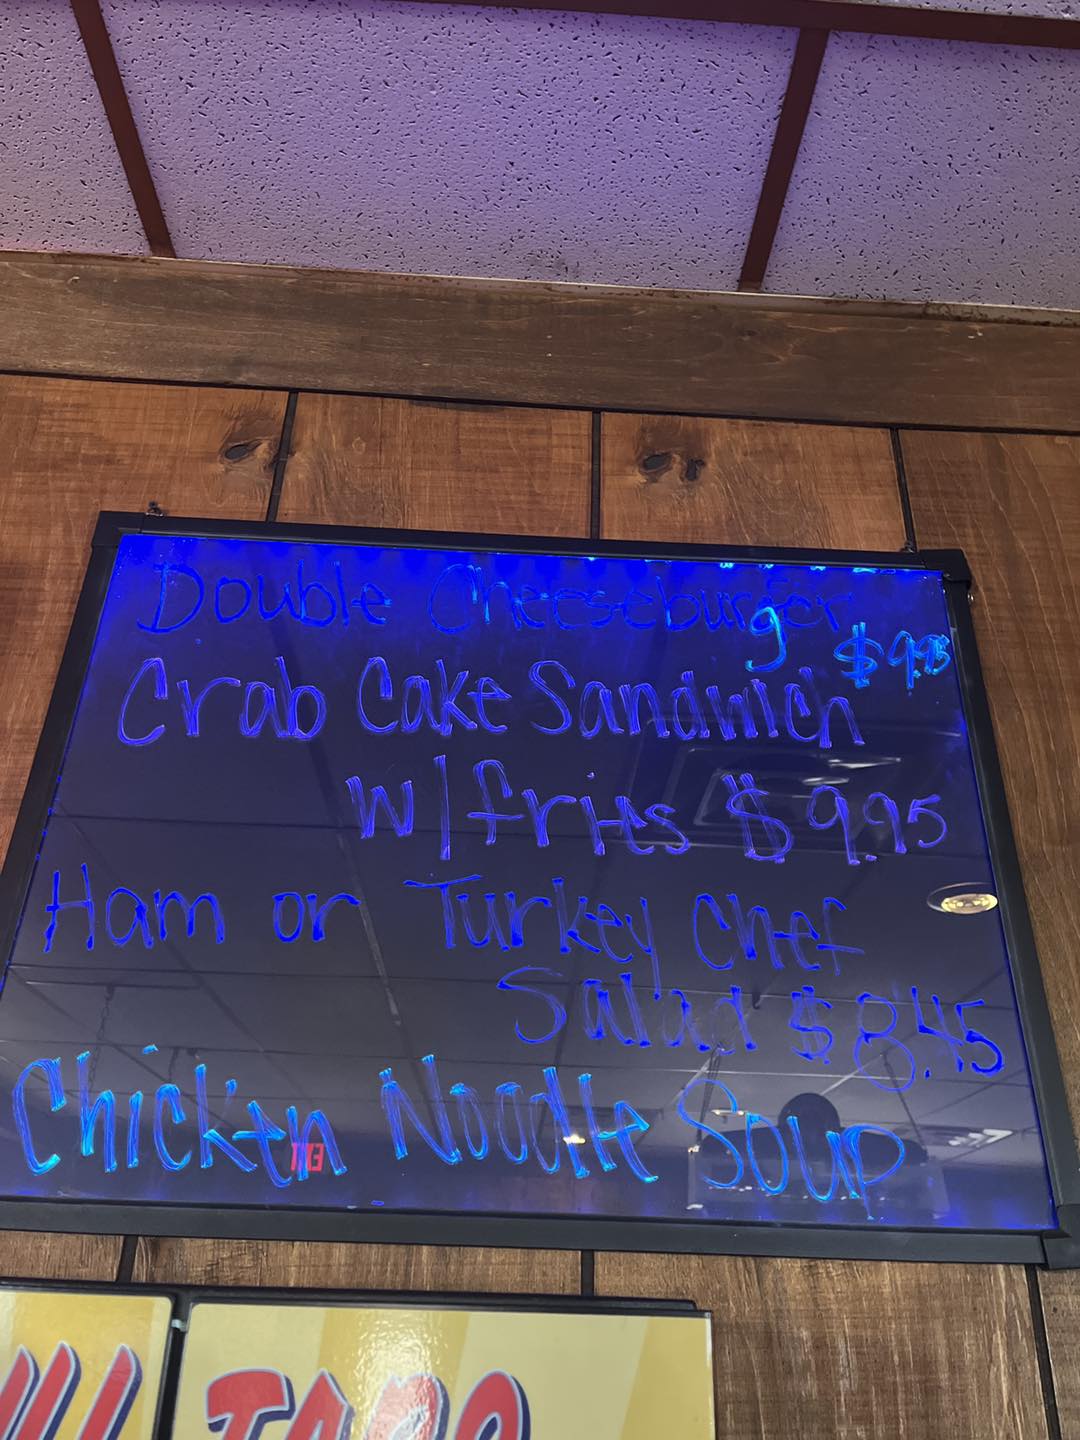 Double Cheeseburger
$9.95
Crab Cake Sandwich
w/fries $9.95
Ham or Turkey Chef
Salad $8.45
Chicken Noodle Soup
EXIT